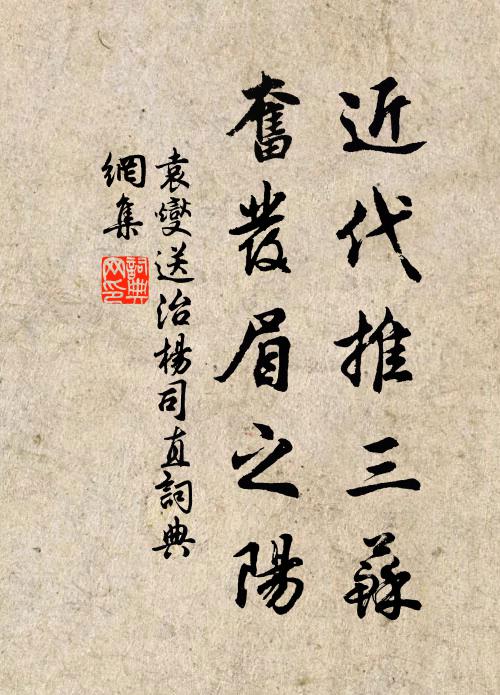 近代推三蘇
奮發眉之陽
袁燮送治楊司直詞典
網集
詞典網印